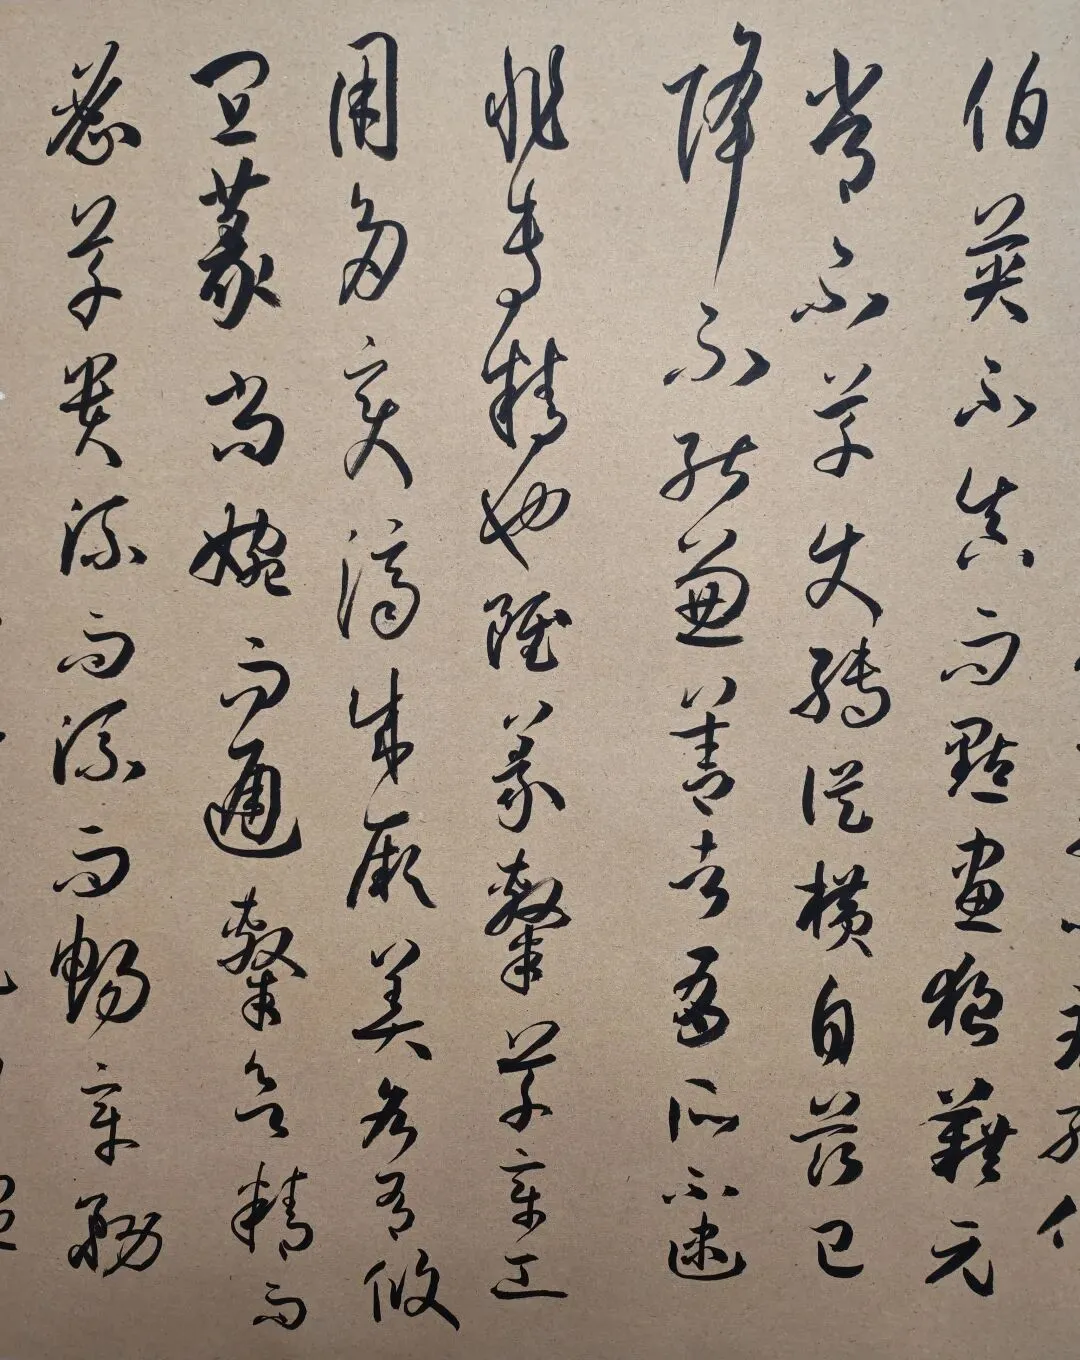 伯英不真而點畫狼藉元
常不草使轉縱橫自茲已
降不能兼善者有所不逮
非專精也雖篆隸草章工
用多變濟成厥美各有攸
宜篆尚婉而通隸欲精而
密草貴流而流而暢章務